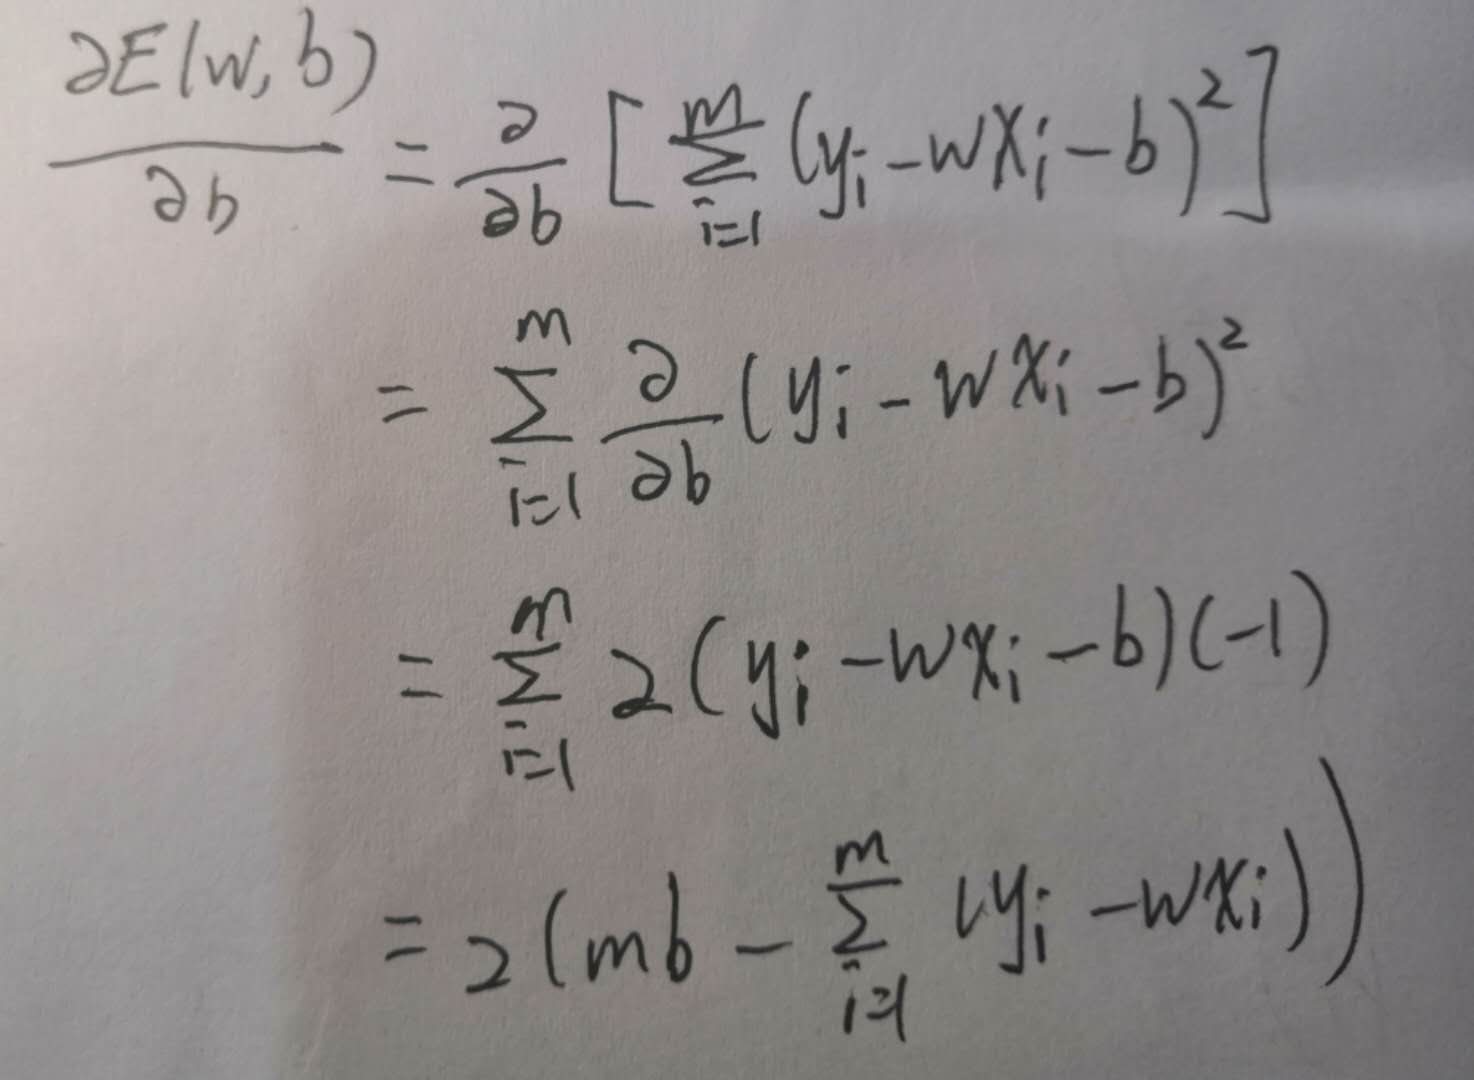 ∂E(w,b)/∂b = ∂/∂b [∑_{i=1}^{m} (y_i - wx_i - b)^2]
= ∑_{i=1}^{m} ∂/∂b (y_i - wx_i - b)^2
= ∑_{i=1}^{m} 2(y_i - wx_i - b)(-1)
= 2(mb - ∑_{i=1}^{m} (y_i - wx_i))